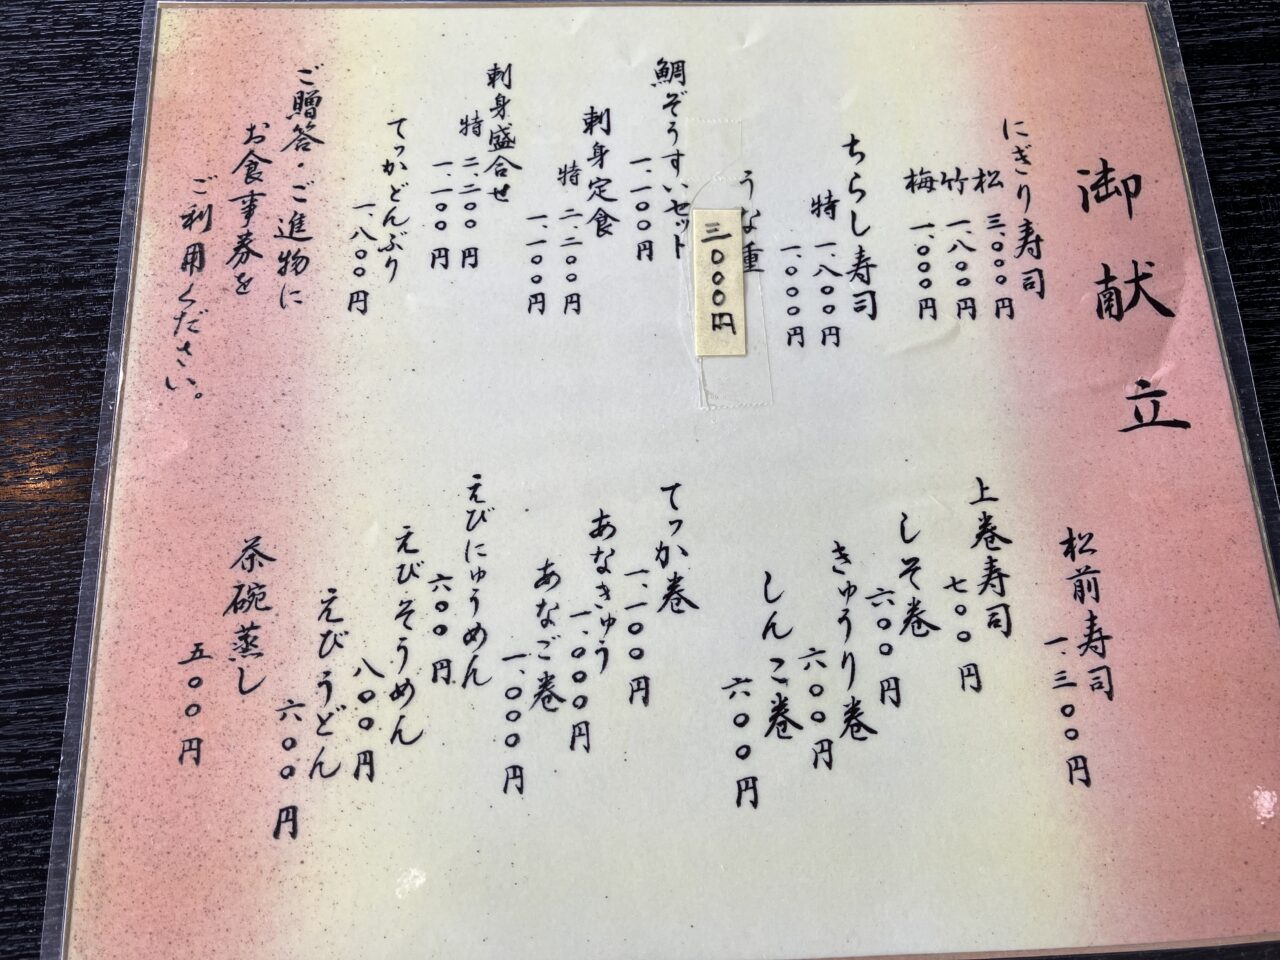 御献立
にぎり寿司
松 三、〇〇〇円
竹 一、八〇〇円
梅 一、〇〇〇円
ちらし寿司
特 一、八〇〇円
一、〇〇〇円
うな重
三〇〇〇円
鯛ぞうすいセット
一、一〇〇円
刺身定食
特 二、二〇〇円
一、一〇〇円
刺身盛合せ
特 二、二〇〇円
一、一〇〇円
てっかどんぶり
一、八〇〇円
ご贈答・ご進物に
お食事券を
ご利用ください。
松前寿司
一、三〇〇円
上巻寿司
七〇〇円
しそ巻
六〇〇円
きゅうり巻
六〇〇円
しんこ巻
六〇〇円
てっか巻
一、一〇〇円
あなきゅう
一、〇〇〇円
あなご巻
一、〇〇〇円
えびにゅうめん
六〇〇円
えびそうめん
八〇〇円
えびうどん
六〇〇円
茶碗蒸し
五〇〇円